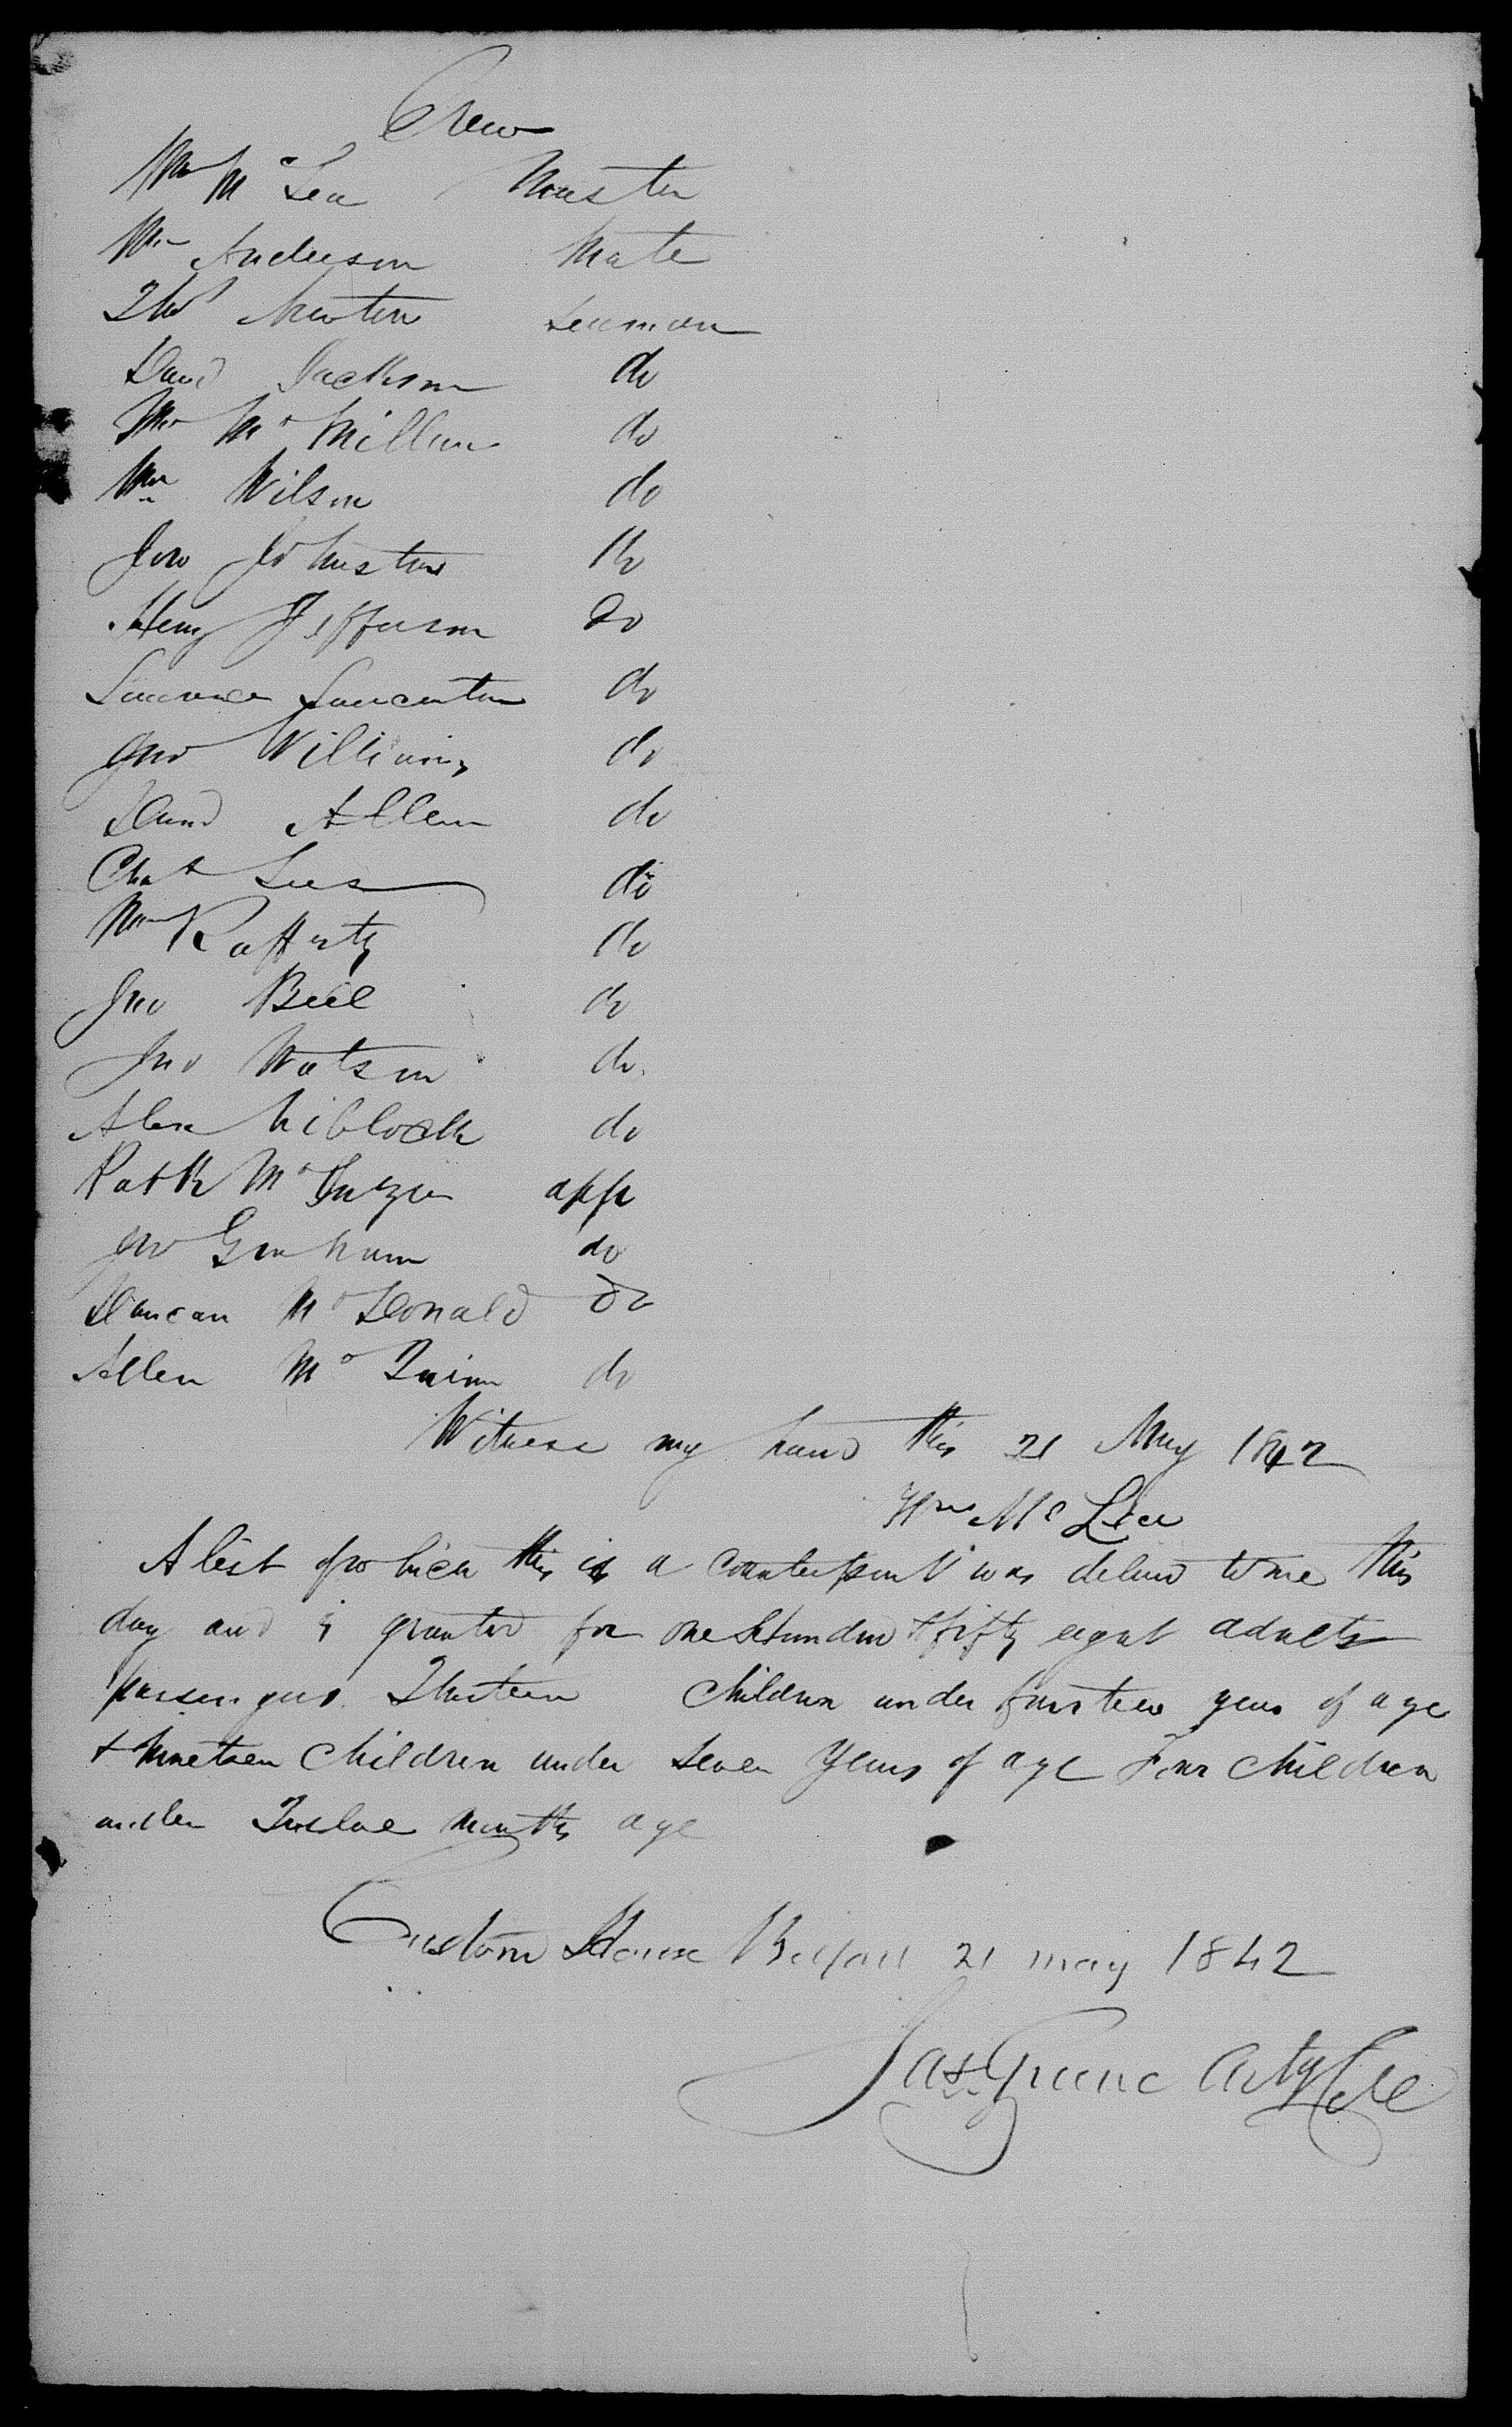 Crew
Wm Mc Lea Master
Wm Anderson Mate
Thos Newton Seaman
David Jackson do
Wm Mc Millan do
Wm Wilson do
Jno Johnston do
Heny Jefferson Do
Laurence do
Jno Williams do
David Allen do
Chas Lees do
Wm Rafferty do
Jno Bell do
Jno Watson do
Alexr Niblock do
Patk Mc app
Jno Graham do
Duncan Mc Donald do
Allen Mc Quinn do
Witness my hand this 21 May 1842
Wm Mc Lea
A list of which this is a Counterpart was deliverd to me this
day and is granted for one Hundred & fifty eight adults
passengers Thirteen Children under fourteen years of age
& Nineteen Children under Seven Years of age Four Children
under Twelve Months age
Custom House Belfast 21 may 1842
Jas Greene